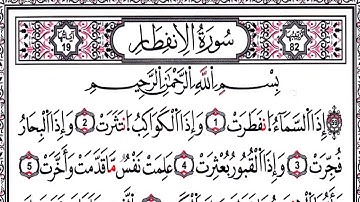 آياتها 19 سُورَةُ الْاِنْفِطَارِ 82
بِسْمِ اللّٰهِ الرَّحْمٰنِ الرَّحِيْمِ
اِذَا السَّمَآءُ انْفَطَرَتْ 1 وَاِذَا الْكَوَاكِبُ انْتَثَرَتْ 2 وَاِذَا الْبِحَارُ
فُجِّرَتْ 3 وَاِذَا الْقُبُوْرُ بُعْثِرَتْ 4 عَلِمَتْ نَفْسٌ مَّا قَدَّمَتْ وَاَخَّرَتْ 5